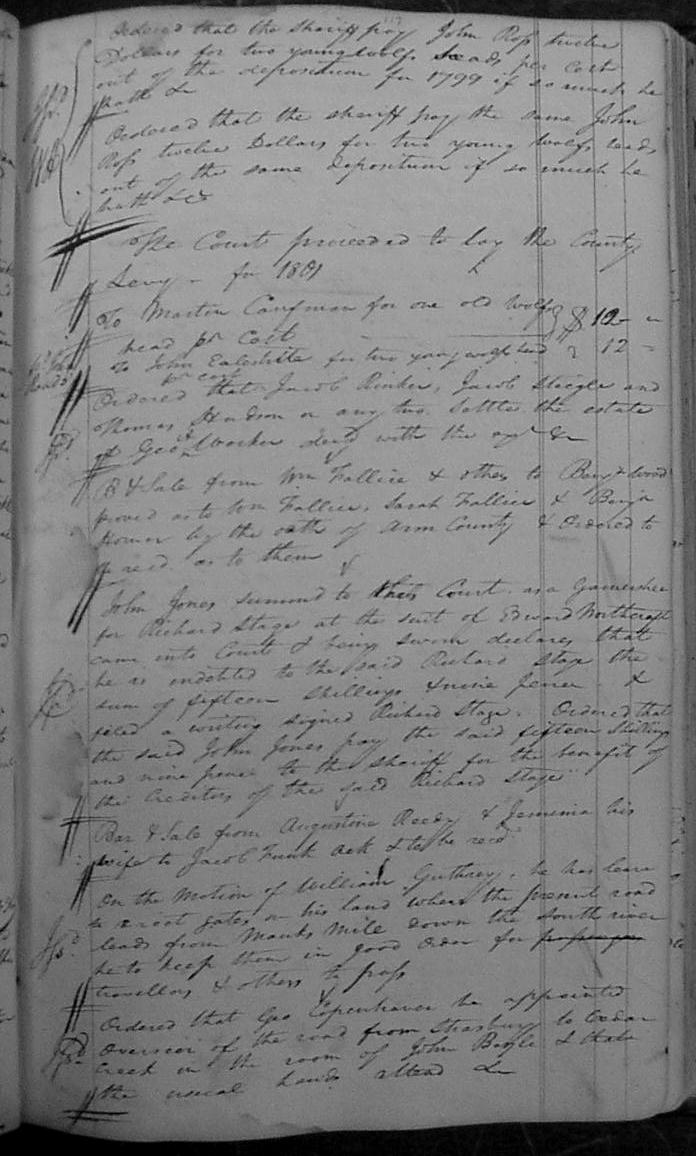 117
Ordered that the Sheriff pay John Ross twelve
Dollars for two young wolfs heads per Cert
out of the deposition for 1799 if so much he
hath &c
Ordered that the sheriff pay the same John
Ross twelve Dollars for two young wolfs heads
out of the same deposition if so much he
hath &c
The Court proceeded to lay the County
Levy for 1801
To Martin Caufman for one old wolfs $ 12
head pr Cert
To John for two young wolfs head 12
pr cert
Ordered that Jacob Rinker, Jacob Steigle and
Thomas Hudson or any two settle the estate
of Geo decd with the &c
B & Sale from Wm Fallice & others to Benj Wood
proved as to Wm Fallice, Sarah Fallice & Benja
by the oath of Arm County & Ordered to
be recd as to them
John Jones summond to this Court as a Garnishee
for Richard Stage at the suit of Edward Northcraft
came into Court & being sworn declares that
he is indebted to the said Richard Stage the
sum of fifteen shillings & nine pence &
filed a writing signed Richard Stage. Ordered that
the said John Jones pay the said fifteen Shillings
and nine pence to the shariff for the benefit of
the Creditors of the said Richard Stage
Bar & Sale from Augustine Reedy & Jemimia his
wife to Jacob Funk ack & to be recd
On the Motion of William Guthrey, he has leave
to erect gates on his land where the present road
leads from Mauks Mile down the South river
he to keep them in good order for
travellors & others to pass
Ordered that Geo Copenhaver be appointed
overseer of the road from Strasburg to Cedar
Creek in the room of John Boyle & that
the usual hands attend &c